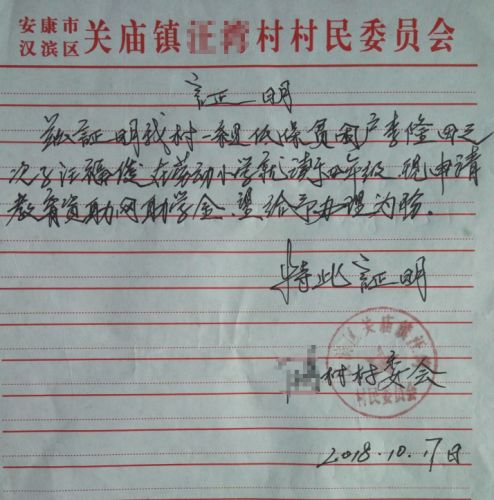 安康市
汉滨区 关庙镇 村村民委员会
証明
兹証明我村一组低保贫困户李隆
次子汪 在劳动小学就读于四年级,现申请
教育资助网助学金,望给予办理为盼。
特此証明
滨区关庙镇
村村委会
村民委员会
2018.10.17日